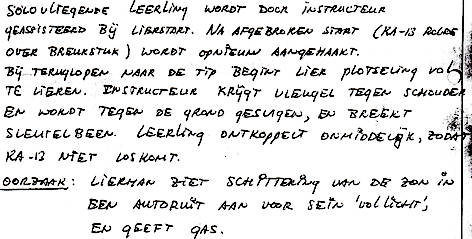 SOLOVLIEGENDE LEERLING WORDT DOOR INSTRUCTEUR
GEASSISTEERD BIJ LIERSTART. NA AFGEBROKEN START (KA-13 ROLDE
OVER BREUKSTUK) WORDT OPNIEUW AANGEHAAKT.
BIJ TERUGLOPEN NAAR DE TIP BEGINT LIER PLOTSELING VOL
TE LIEREN. INSTRUCTEUR KRIJGT VLEUGEL TEGEN SCHOUDER
EN WORDT TEGEN DE GROND GESLAGEN, EN BREEKT
SLEUTELBEEN. LEERLING ONTKOPPELT ONMIDDELIJK, ZODAT
KA-13 NIET LOSKOMT.
OORZAAK: LIERMAN ZIET SCHITTERING VAN DE ZON IN
EEN AUTORUIT AAN VOOR SEIN 'VOL LICHT',
EN GEEFT GAS.